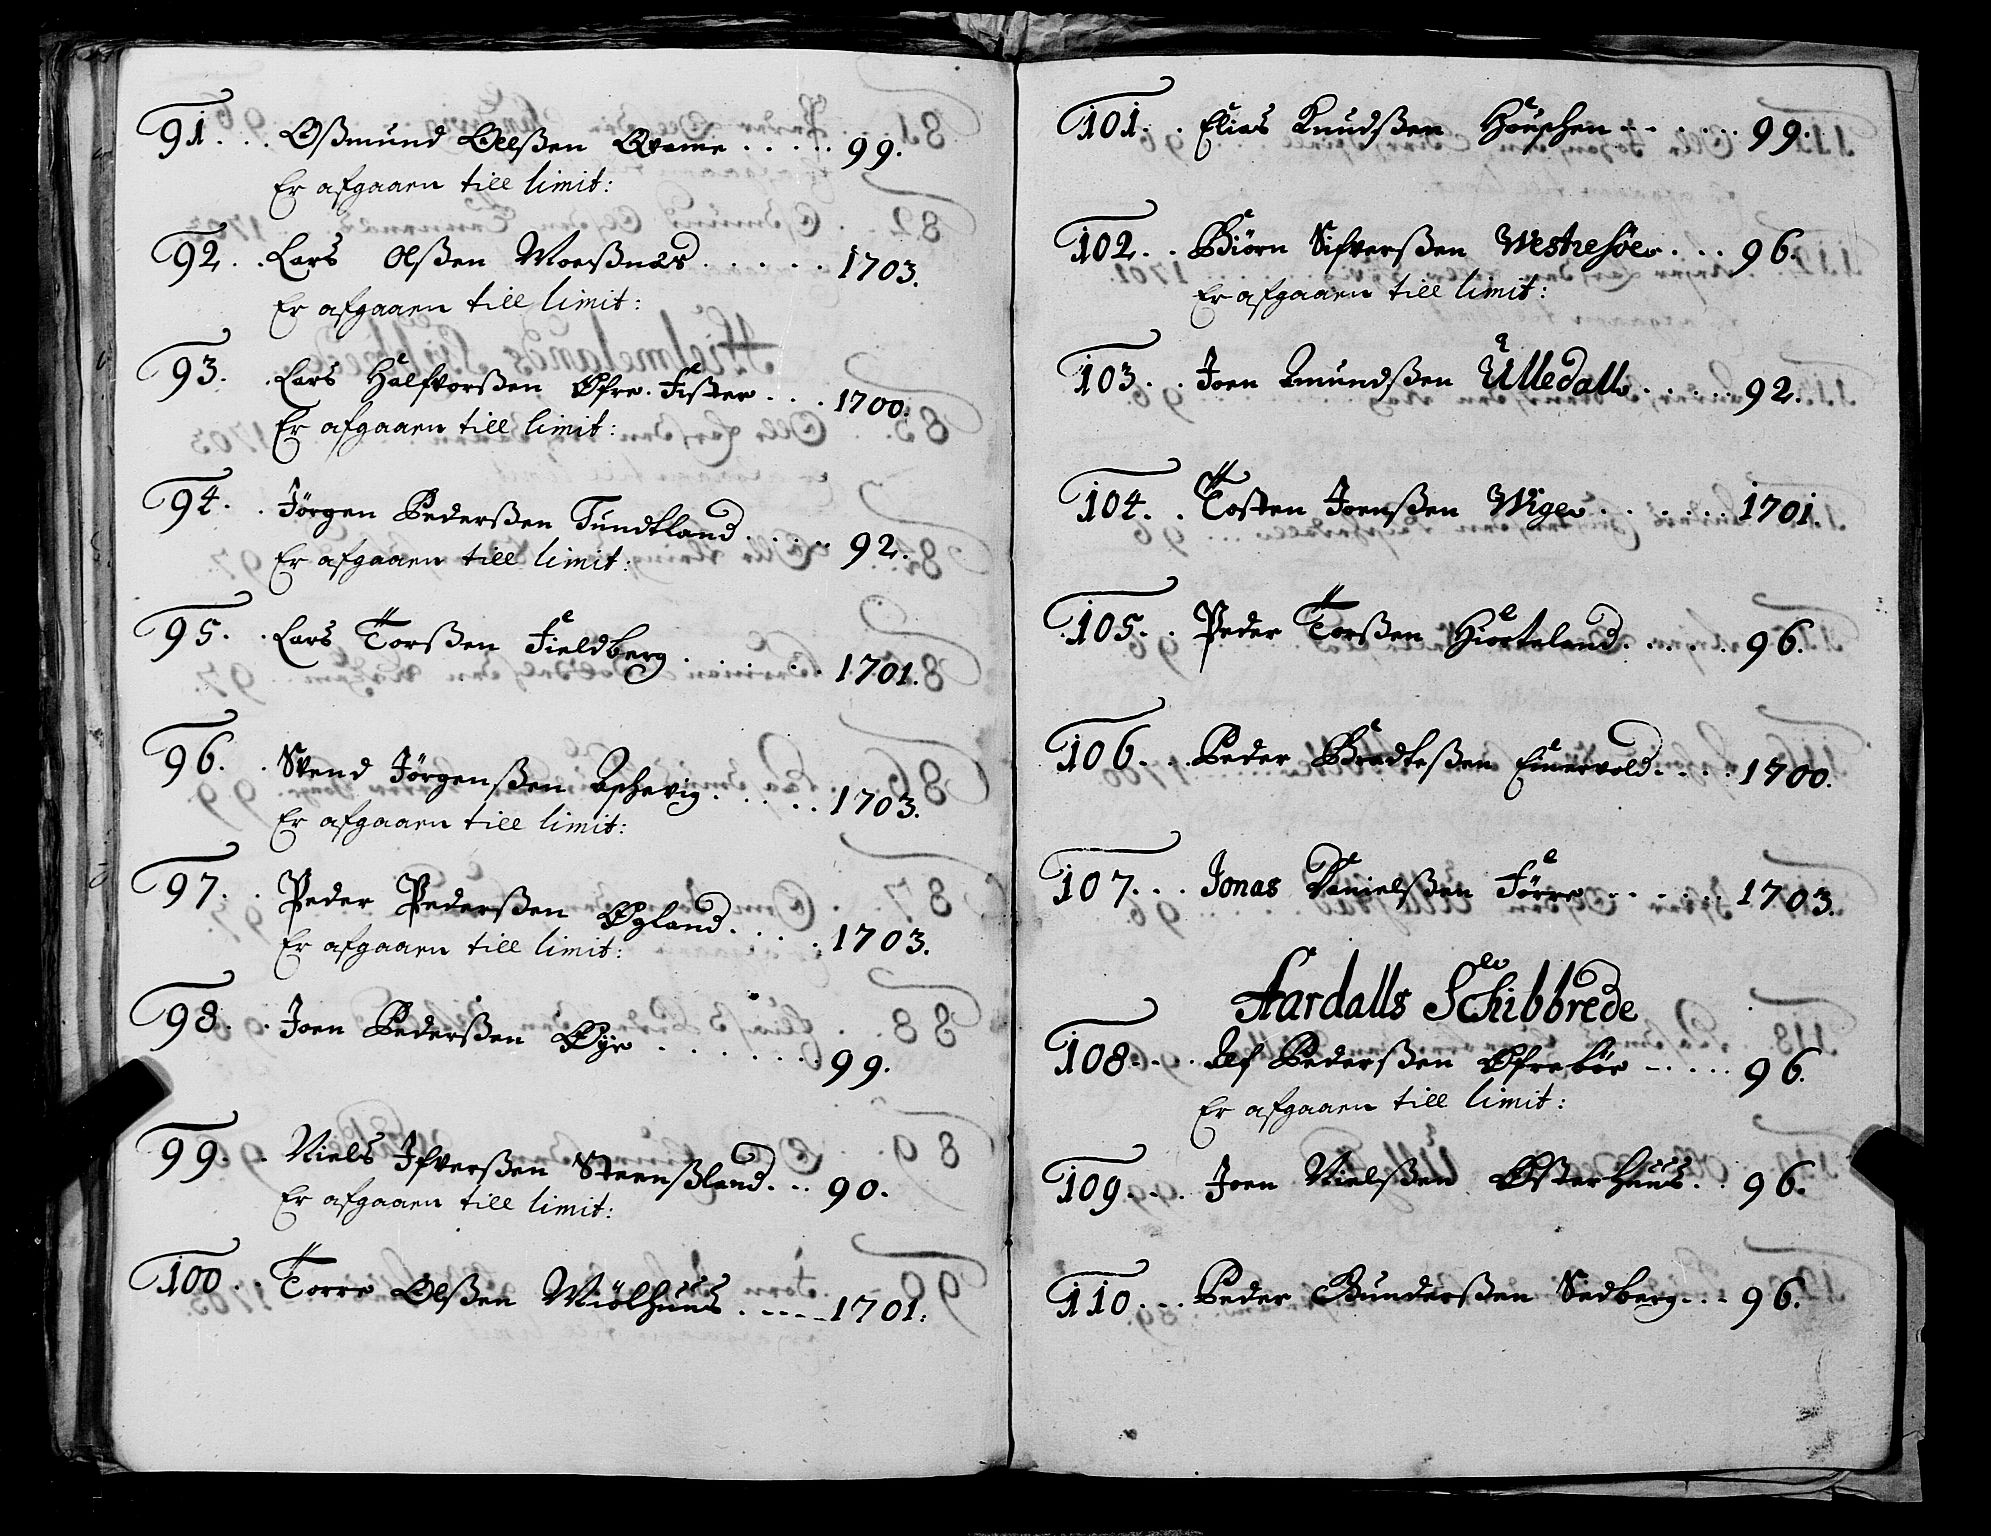 91. Oßmund Olleßen Qvame 99.
Er afgaaen till limit:
92. Lars Olßen Moeßnæs 1703.
Er afgaaen till limit:
93. Lars Halfvorßen Øfre Fister 1700.
Er afgaaen till limit:
94. Jörgen Pederßen Tundtland 92.
Er afgaaen till limit:
95. Lars Torßen Fieldberg 1701.
96. Svend Jörgenßen Aschevig 1703.
Er afgaaen till limit:
97. Peder Pederßen Øgland 1703.
Er afgaaen till limit:
98. Joen Pederßen Øye 99.
99. Niels Ifverßen Steenßland 90.
Er afgaaen till limit:
100. Torre Olßen Miölhuus 1701.
101. Elias Knudßen Houschen 99.
102. Biörn Sifverßen Westresöe 96.
Er afgaaen till limit:
103. Joen Amundßen Ülledall 92.
104. Tosten Joenßen Wige 1701.
105. Peder Torßen Hiorteland 96.
106. Peder Bradteßen Eiuervold 1700.
107. Jonas Danielßen Förre 1703.
Aardalls Schibbrede
108. Alf Pederßen Øfreböe 96.
Er afgaaen till limit:
109. Joen Nielßen Østerhuus 96.
110. Peder Gunderßen Sedberg 96.